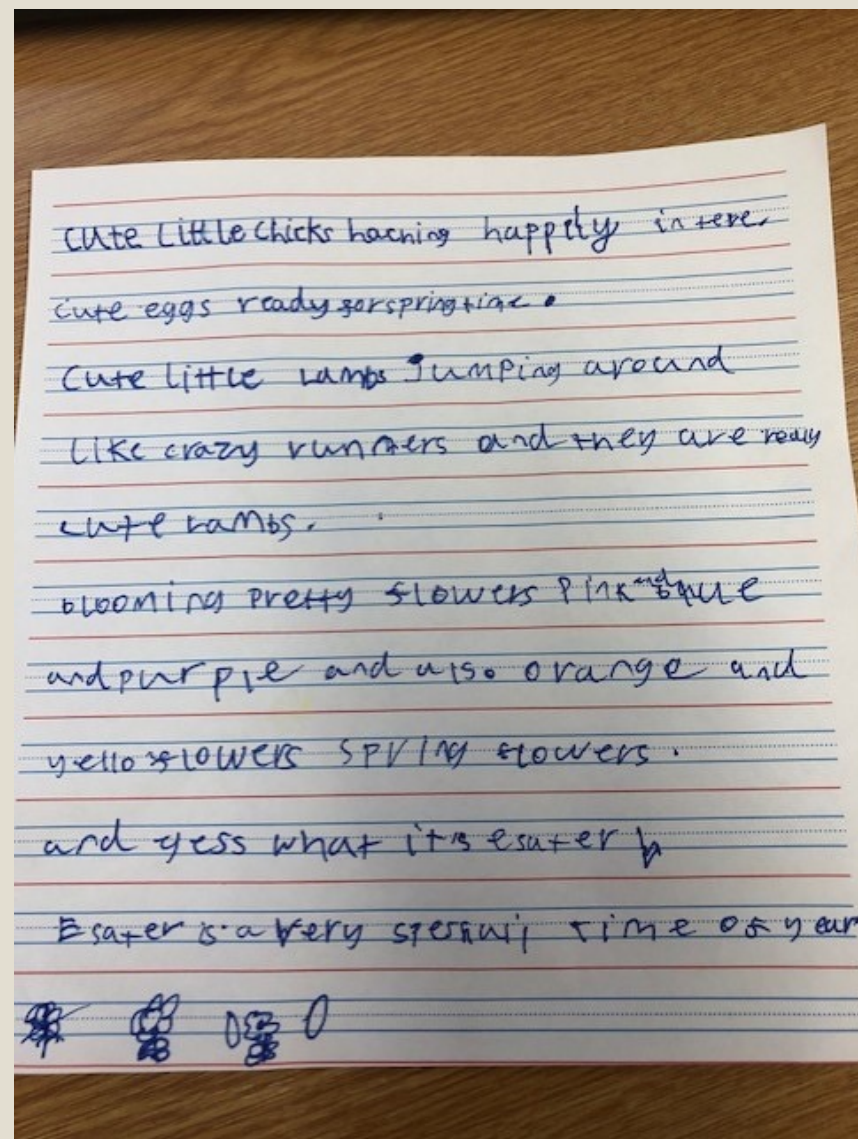 cute Little chicks haching happily in tere
cute eggs ready for springtime.
Cute little Lambs Jumping around
Like crazy runners and they are realy
cute Lambs.
blooming pretty flowers Pink and blue
and purple and also orange and
yello flowers spring flowers.
and gess what it's esater
Esater is a very time of year